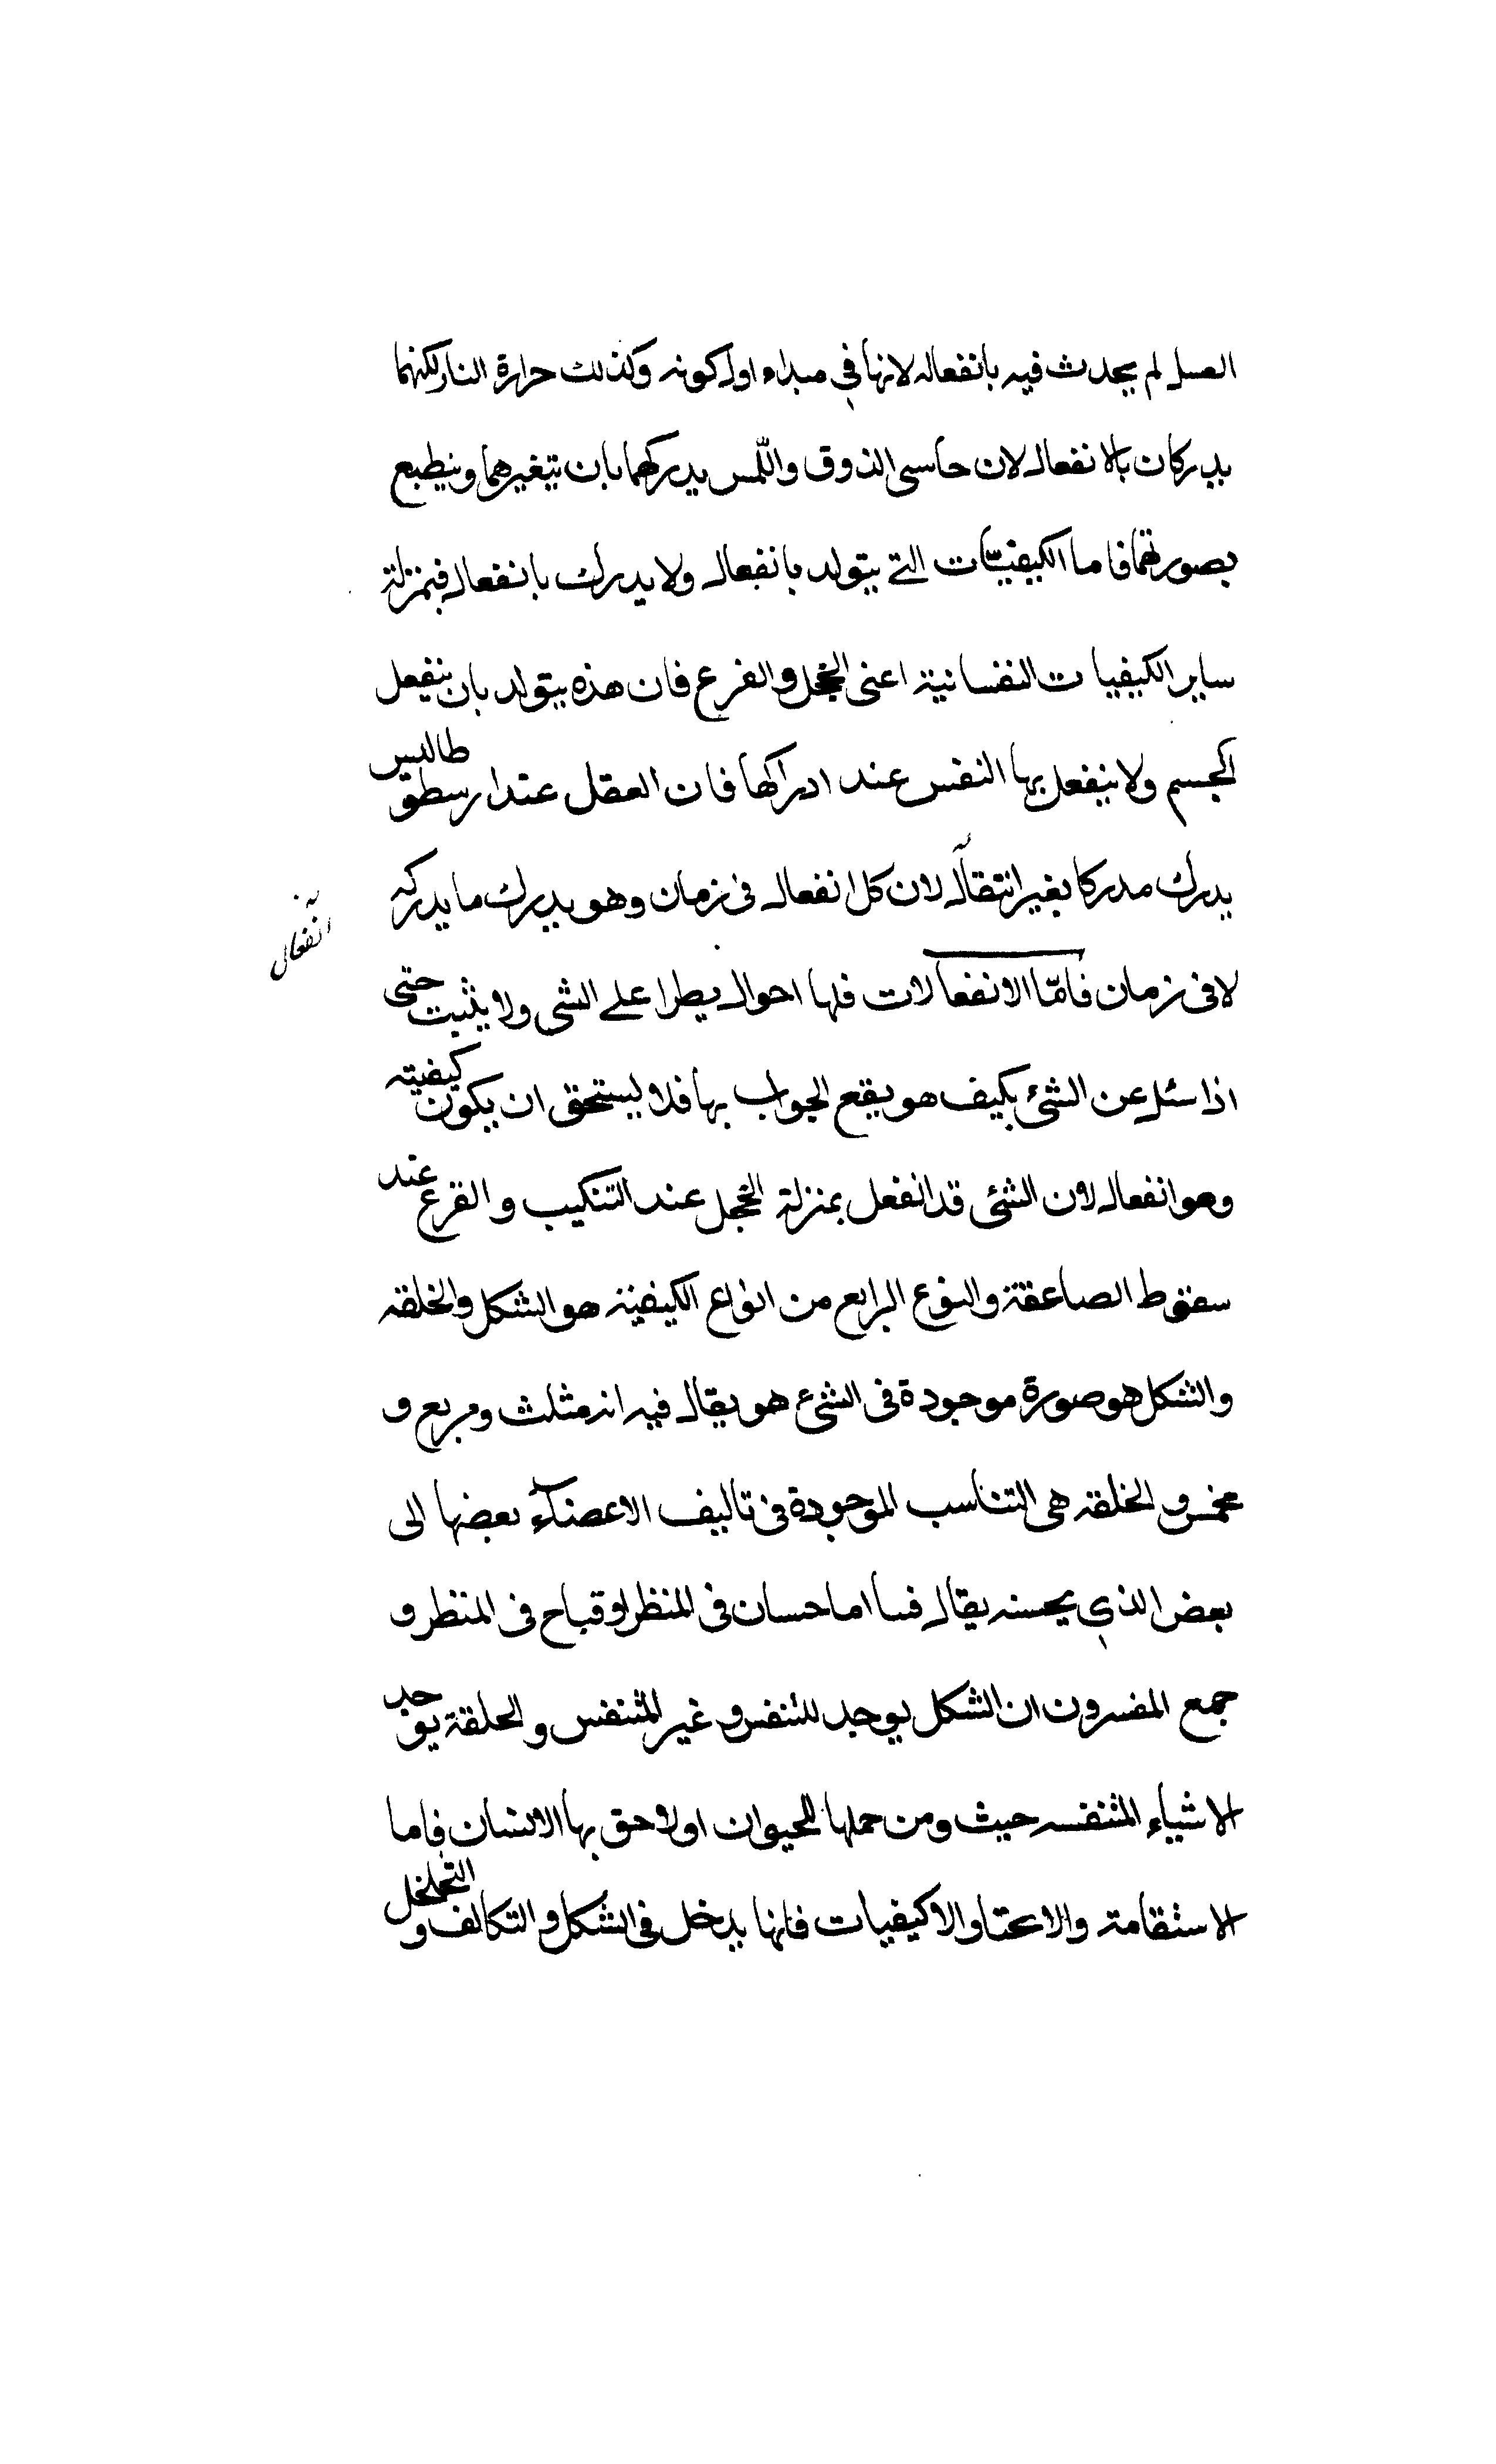 العسل لم يحدث فيه بانفعال لانها في مبداء اول كونه وكذلك حرارة النار لكنهما
يدركان بالانفعال لان حاسى الذوق واللّمس يدركهما بان يتغير هما وينطبع
بصورتهما فاما الكيفيّات التى يتولد بانفعال ولا يدرك بانفعال فبمنزلة
ساير الكيفيات النفسانية اعنى الخجل والفزع فان هذه يتولد بان ينفعل
الجسم ولا ينفعل بها النفس عند ادراكها فان العقل عند ارسطوطاليس
يدرك مدركا بغير انتقال لان كل انفعال فى زمان وهو يدرك ما يدركه
انفعال
لا فى زمان فامّا الانفعالات فلها احوال يطرا على الشى ولا يثبت حتى
اذا سئل عن الشئ بكيف هو يقع الجواب بها فلا يستحق ان يكون كيفيته
وهو انفعال لان الشئى قد انفعل بمنزلة الخجل عند التنكيب والفزع عند
سقوط الصاعقة والنوع الرابع من انواع الكيفية هو الشكل والخلقه
والشكل هو صورة موجودة فى الشئ هو يقال فيه انه مثلث ومربع و
مخمس والخلقه هى التناسب الموجودة فى تاليف الاعضآء بعضها الى
بعض الذي يحسنه يقال فينا اما حسان فى المنظر او قباح فى المنظر و
جمع المفسرون ان الشكل يوجد للتنفس وغير المتنفس والخلقة يوجد
الاشياء المتنفسه حيث ومن حملها للحيوان اولا حق بها الانسان فاما
الاستقامة والا كيفيات فانها يدخل فى الشكل والتكاثف والتخلخل